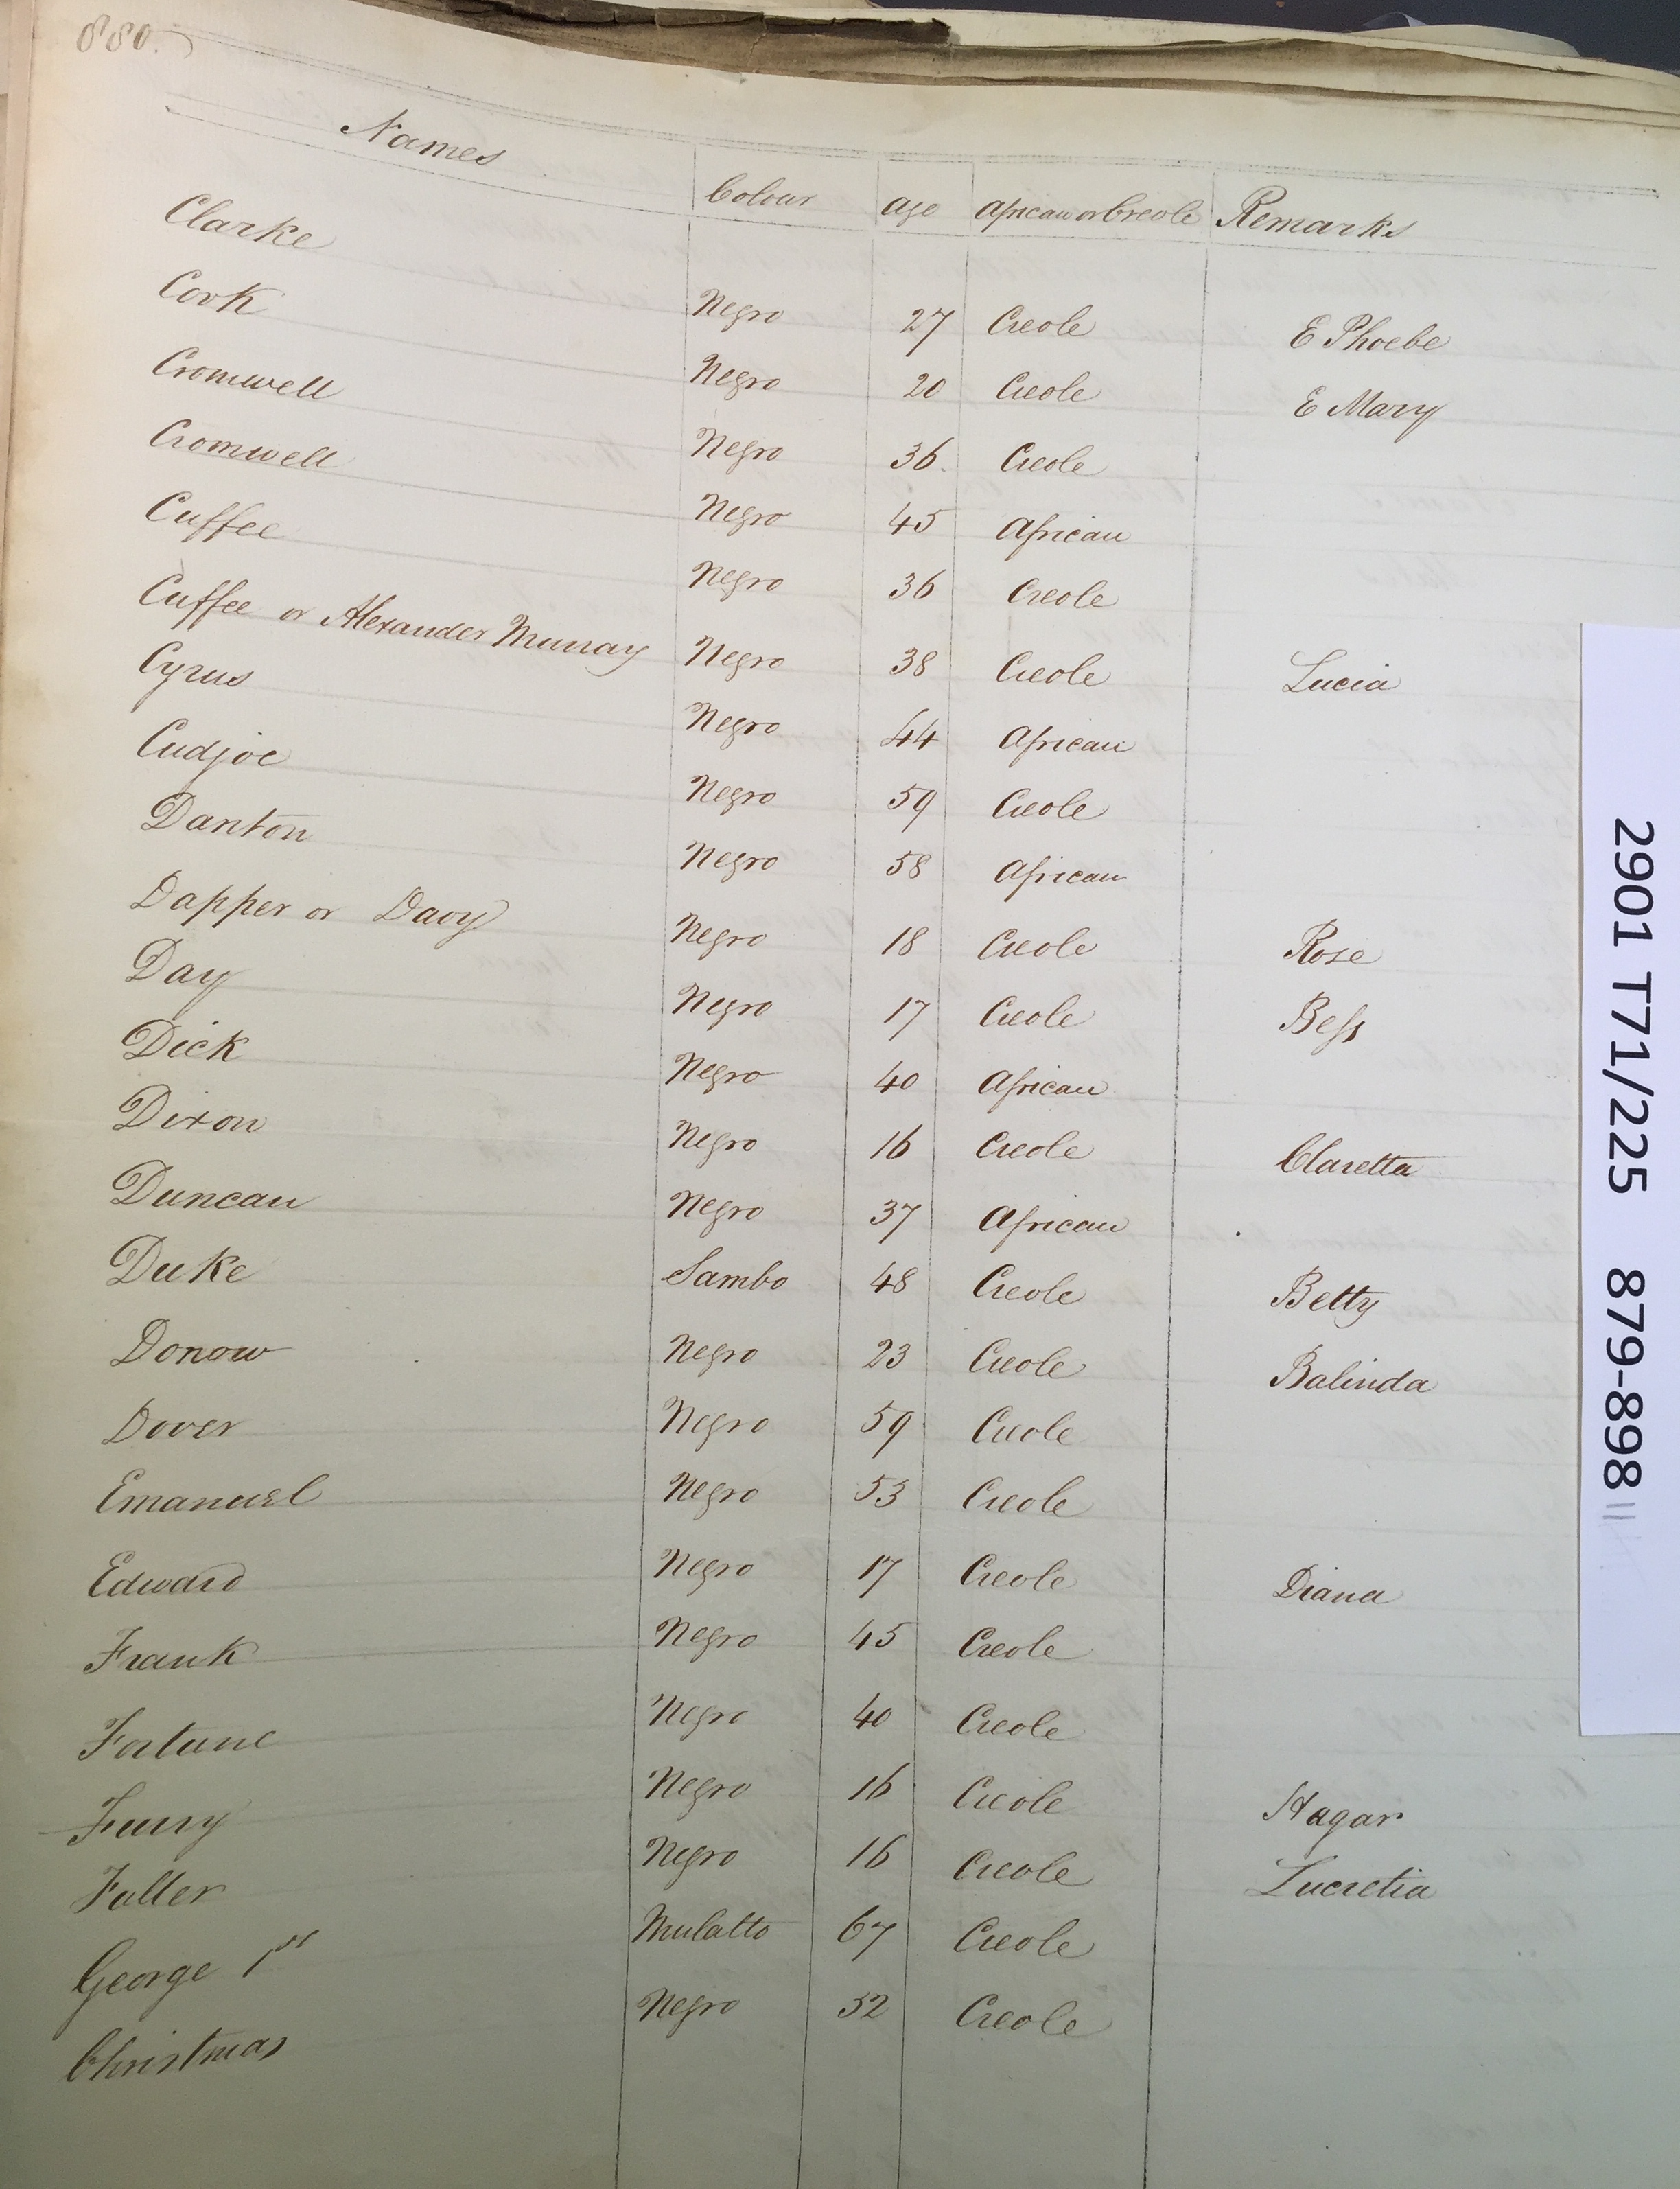 880.
Names Colour Age African or Creole Remarks
Clarke Negro 27 Creole E Phoebe
Cork Negro 20 Creole E Mary
Cromwell Negro 36. Creole
Cromwell Negro 45 African
Cuffee Negro 36 Creole
Cuffee or Alexander Murray Negro 38 Creole Lucia
Cyrus Negro 44 African
Cudjoe Negro 59 Creole
Danton Negro 58 African
Dapper or Davy Negro 18 Creole Rose
Day Negro 17 Creole Bess
Dick Negro 40 African
Dixon Negro 16 Creole Claretta
Duncan Negro 37 African
Duke Sambo 48 Creole Betty
Donow Negro 23 Creole Balinda
Dover Negro 59 Creole
Emanuel Negro 53 Creole
Edward Negro 17 Creole Diana
Frank Negro 45 Creole
Fortune Negro 40 Creole
Furry Negro 16 Creole Hagar
Fuller Negro 16 Creole Lucretia
George 1st Mulatto 67 Creole
Christmas Negro 52 Creole
2901 T71/225 879-898